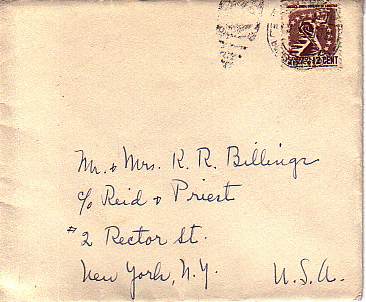 Mr. & Mrs. K. R. Billings
c/o Reid & Priest
#2 Rector St.
New York, N.Y. U.S.A.